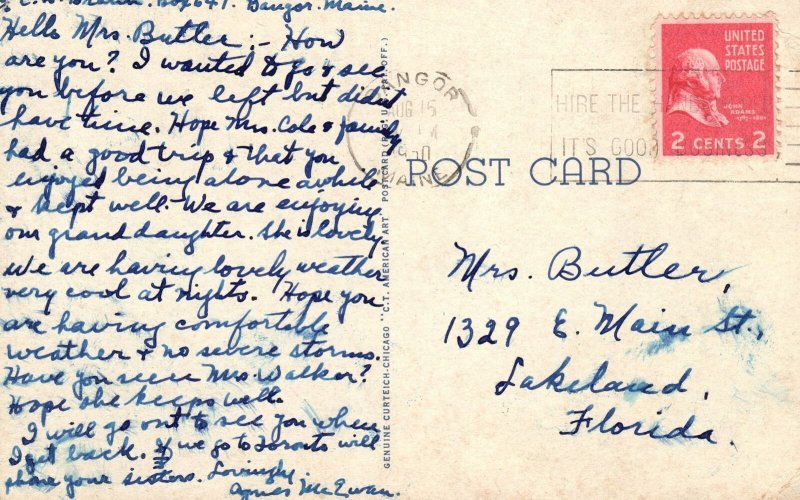 % C. W. Braun. Box 647. Bangor. Maine.
Hello Mrs. Butler:- How
are you? I wanted to go & see
you before we left but didn't
have time. Hope Mrs. Cole & family
had a good trip & that you
enjoyed being alone awhile
& kept well. We are enjoying
our granddaughter. She is lovely.
We are having lovely weather
very cool at nights. Hope you
are having comfortable
weather & no severe storms.
Have you seen Mrs. Walker?
Hope she keeps well.
I will go out to see you when
I get back. If we go to Toronto will
phone your sisters. Lovingly.
Agnes McEwan.
GENUINE CURTEICH-CHICAGO "C.T. AMERICAN ART" POSTCARD (REG. U.S. PAT. OFF.)
BANGOR
AUG 15
1950
MAINE
HIRE THE
IT'S GOOD BUSINESS
UNITED
STATES
POSTAGE
JOHN
ADAMS
1797-1801
2 CENTS 2
POST CARD
Mrs. Butler,
1329 E. Main St.,
Lakeland,
Florida.